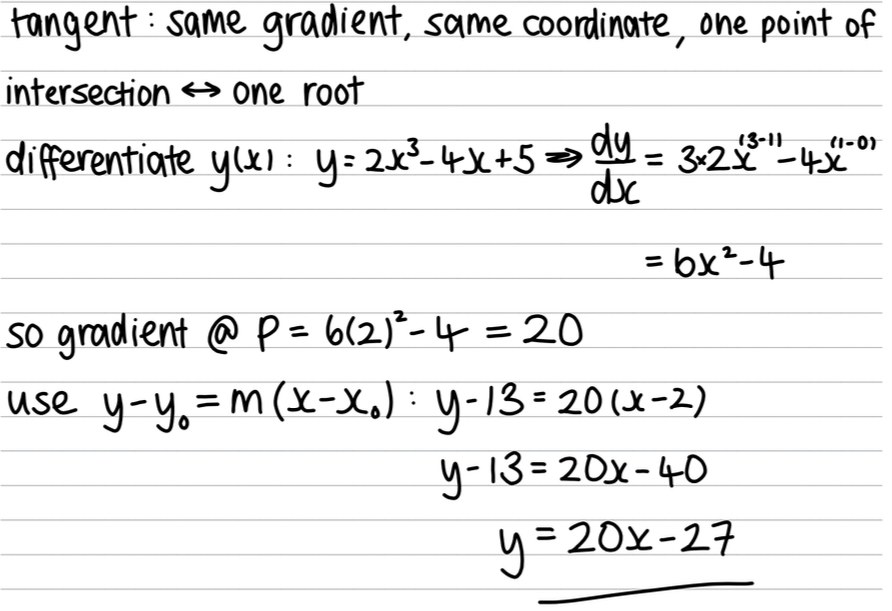 tangent : same gradient, same coordinate, one point of
intersection ↔ one root
differentiate y(x) : y = 2x³ - 4x + 5 ⇒ dy/dx = 3×2x^(3-1) - 4x^(1-0)
= 6x² - 4
so gradient @ P = 6(2)² - 4 = 20
use y - y₀ = m(x - x₀) : y - 13 = 20(x - 2)
y - 13 = 20x - 40
y = 20x - 27